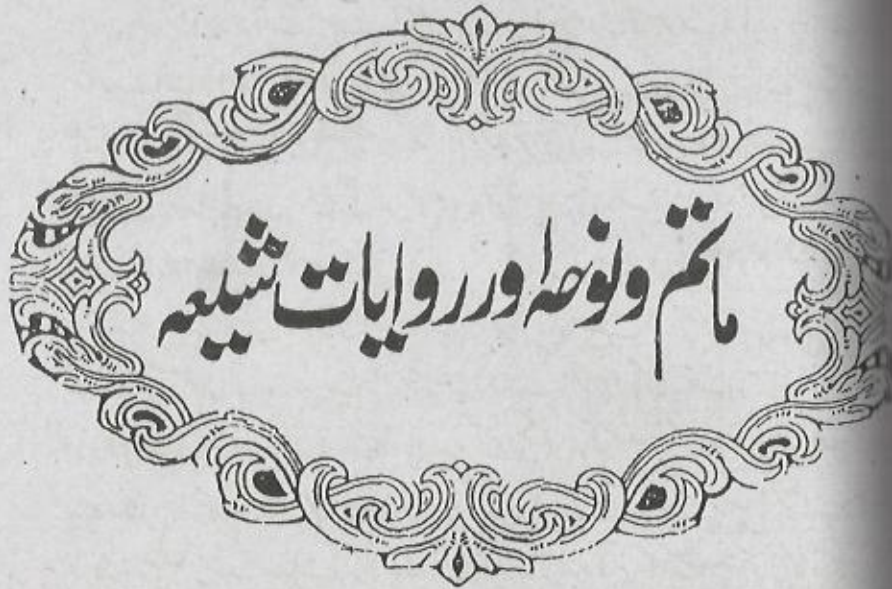 ماتم ونوحہ اور روایات شیعہ